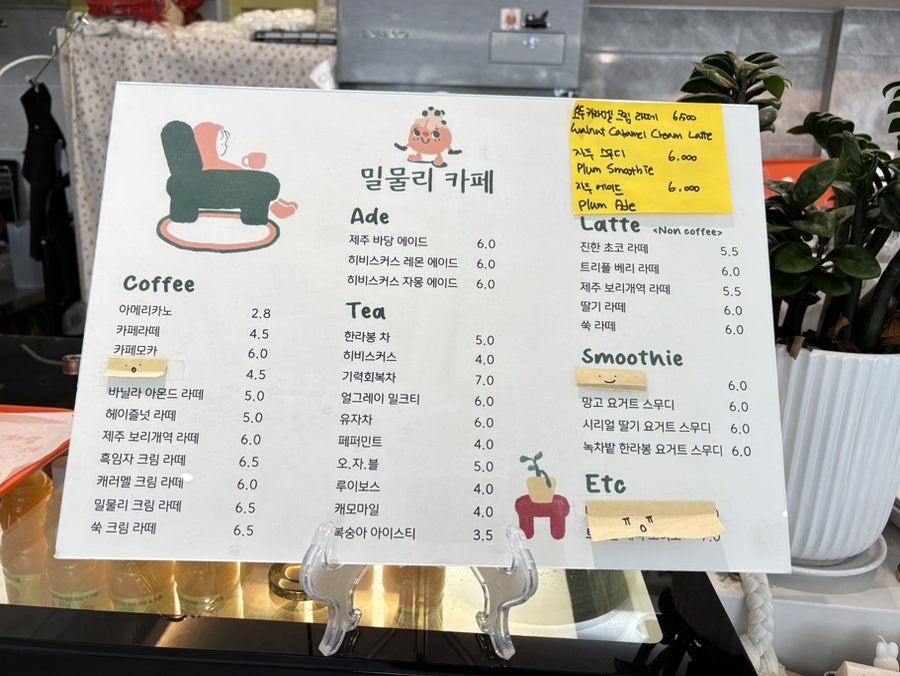 밀물리 카페
Coffee
아메리카노 2.8
카페라떼 4.5
카페모카 6.0
4.5
바닐라 아몬드 라떼 5.0
헤이즐넛 라떼 5.0
제주 보리개역 라떼 6.0
흑임자 크림 라떼 6.5
캐러멜 크림 라떼 6.0
밀물리 크림 라떼 6.5
쑥 크림 라떼 6.5
Ade
제주 바당 에이드 6.0
히비스커스 레몬 에이드 6.0
히비스커스 자몽 에이드 6.0
Tea
한라봉 차 5.0
히비스커스 4.0
기력회복차 7.0
얼그레이 밀크티 6.0
유자차 6.0
페퍼민트 4.0
오.자.블 5.0
루이보스 4.0
캐모마일 4.0
복숭아 아이스티 3.5
카라멜 크림 라떼 6.500
Walnut Caramel Cream Latte
자두 스무디 6.000
Plum Smoothie
자두 에이드 6.000
Plum Ade
Latte <Non coffee>
진한 초코 라떼 5.5
트리플 베리 라떼 6.0
제주 보리개역 라떼 5.5
딸기 라떼 6.0
쑥 라떼 6.0
Smoothie
6.0
망고 요거트 스무디 6.0
시리얼 딸기 요거트 스무디 6.0
녹차밭 한라봉 요거트 스무디 6.0
Etc
7.0